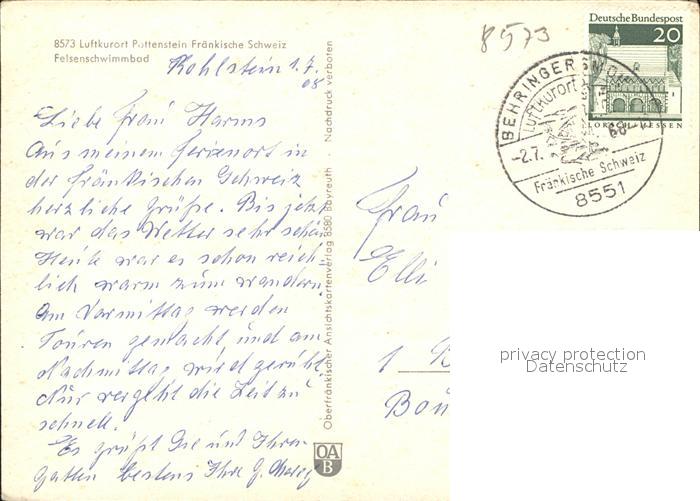 8573 Luftkurort Pottenstein Fränkische Schweiz
Felsenschwimmbad
Kohlstein 1.7.
68
Liebe Frau Harms
Aus meinem Ferienort in
der Fränkischen Schweiz
herzliche Grüße. Bis jetzt
war das Wetter sehr schön
Heute war es schon reich
lich warm zum wandern.
Am Vormittag werden
Touren gemacht und am
Nachmittag wird geruht.
Nur vergeht die Zeit zu
schnell.
Es grüßt Sie und Ihren
Gatten bestens Ihre G.
Oberfränkischer Ansichtskartenverlag 8580 Bayreuth · Nachdruck verboten
OA
B
8573
Deutsche Bundespost
20
LORSCH-HESSEN
BEHRINGERSMÜHLE
Luftkurort
-2.7.
68-
Fränkische Schweiz
8551
Frau
Elli
1 B
Bou
privacy protection
Datenschutz